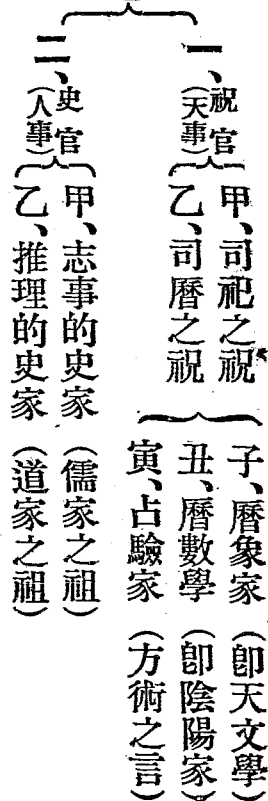 一、祝官（天事）
甲、司祀之祝
乙、司曆之祝
子、曆象家（卽天文學）
丑、曆數學（卽陰陽家）
寅、占驗家（方術之言）
二、史官（人事）
甲、志事的史家（儒家之祖）
乙、推理的史家（道家之祖）